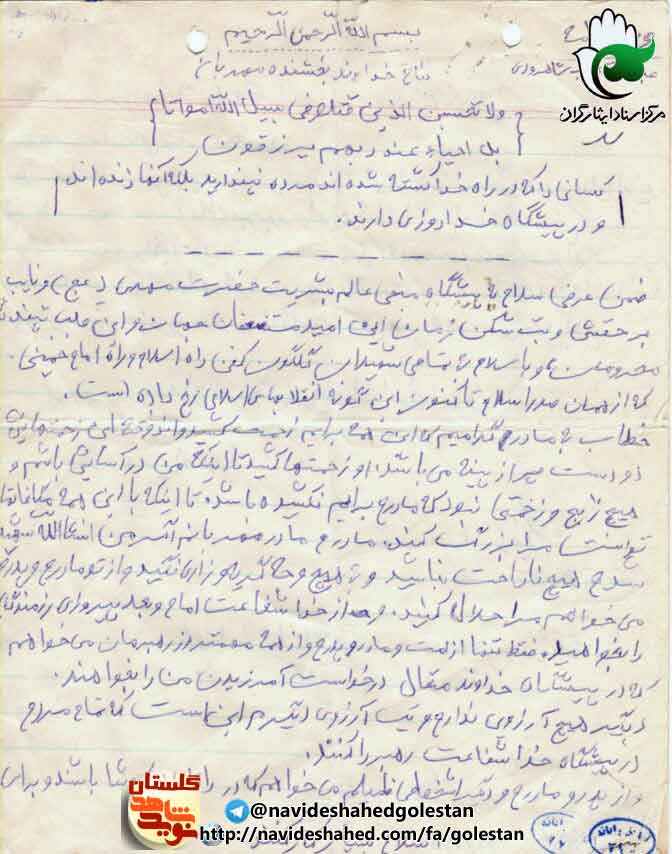 بسم الله الرحمن الرحیم
بنام خداوند بخشنده مهربان
مرکز اسناد ایثارگران
ولا تحسبن الذین قتلو فی سبیل الله امواتا
بل احیاء عند ربهم یرزقون
کسانی را که در راه خدا کشته شده اند مرده نپندارید بلکه آنها زنده اند
و در پیشگاه خدا روزی دارند.
ضمن عرض سلام به پیشگاه منجی عالم بشریت حضرت مهدی (عج) و نایب
بر حقش و بت شکن زمان این امید مستضعفان جهان و این قلب تپنده
محرومان و با سلام به تمامی شهیدان گلگون کفن راه اسلام و راه امام خمینی
که از همان صدر اسلام تا کنون این گونه انقلابهای اسلامی رخ داده است.
خطاب به مادر گرامیم که این همه برایم زحمت کشید و
دو دست می باشد. او زحمتها کشید تا اینکه من در آسایش باشم و
هیچ رنج و زحمتی نبود که مادرم برایم نکشیده باشد تا اینکه با این همه
مرا بزرگ کند. مادرم مادر مهربانم اگر من انشاالله شهید
شدم هیچ ناراحت نباشید و هیچ وقت گریه و زاری نکنید و از تو مادرم و پدرم
می خواهم مرا حلال کنید. و از خدا شفاعت امام و بعد پیروزی رزمندگان
را بخواهید. فقط تنها از امت و مادر و پدرم و از همه مهمتر از رهبرمان می خواهم
که در پیشگاه خداوند متعال درخواست آمرزیدن من را بخواهند.
دیگر هیچ آرزوی ندارم و یک آرزوی دیگرم این است که تمام مردم
در پیشگاه خدا شفاعت رهبر را کنند.
و از پدر و مادرم و دیگر می خواهم که در باشند و برای
گلستان
نوید شاهد
@navideshahedgolestan
http://navideshahed.com/fa/golestan